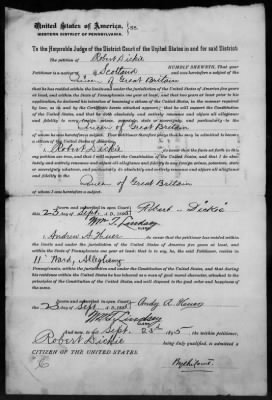 United States of America,
WESTERN DISTRICT OF PENNSYLVANIA.
To the Honorable Judge of the District Court of the United States in and for said District:
The petition of Robert Dickie HUMBLY SHEWETH, That your
Petitioner is a native of Scotland and was heretofore a subject of the
Queen of Great Britain
that he has resided within the limits and under the jurisdiction of the United States five years
at least, and within the State of Pennsylvania one year at least, and that two years at least prior to his
application, he declared his intention of becoming a citizen of the United States, in the manner required
by law, as
and that he doth absolutely and entirely renounce and abjure all allegiance
and fidelity to every foreign prince, potentate, state or sovereignty, and particularly to the
Queen of Great Britain
of whom he was heretofore subject. Your Petitioner therefore prays that he may be admitted to become
a citizen of the United States.
I, Robert Dickie
petition are true, and that I will support the Constitution of the United States, and that I do absolutely
and entirely renounce and abjure all allegiance and fidelity to any foreign prince, potentate, state
or sovereignty whatever, and particularly to the
Queen of Great Britain
of whom I was heretofore subject.
Sworn and subscribed in open Court
this 23 Sept. Robert Dickie
Wm T. Lindsey
I, Andrew do swear that the petitioner has resided within the
limits and under the jurisdiction of the United States of America five years at least, and
within the State of Pennsylvania one year at least; that is to say, he, the said Petitioner, resides in
11" Ward, Allegheny
within the limits and under the jurisdiction of the United States; and that during
his residence within the United States he has behaved as a man of good moral character, attached to the
principles of the Constitution of the United States, and well disposed to the good order and happiness
of the same.
Sworn and subscribed in open Court
this 23 Sept. Andy A.
Wm T. Lindsey
And now, to wit: Sept. 23d 1895, the within petitioner,
Robert Dickie being duly qualified, is admitted a
CITIZEN OF THE UNITED STATES.
By the Court.